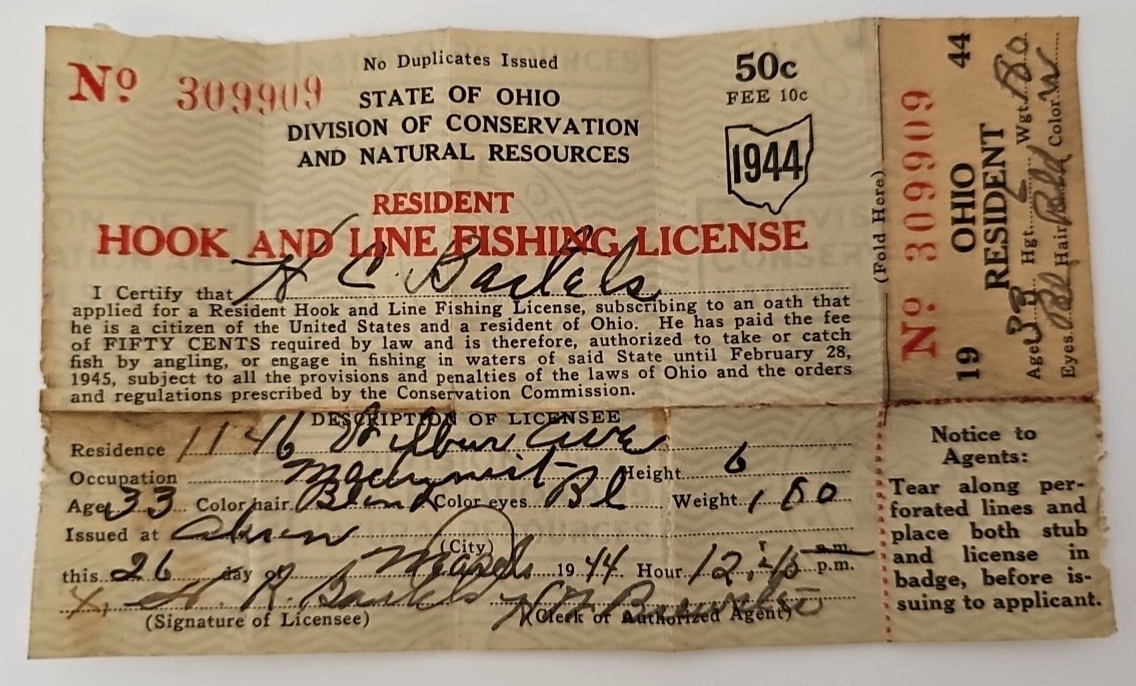 No 309909
No Duplicates Issued
STATE OF OHIO
DIVISION OF CONSERVATION
AND NATURAL RESOURCES
50c
FEE 10c
1944
RESIDENT
HOOK AND LINE FISHING LICENSE
I Certify that H C Bartels
applied for a Resident Hook and Line Fishing License, subscribing to an oath that
he is a citizen of the United States and a resident of Ohio. He has paid the fee
of FIFTY CENTS required by law and is therefore, authorized to take or catch
fish by angling, or engage in fishing in waters of said State until February 28,
1945, subject to all the provisions and penalties of the laws of Ohio and the orders
and regulations prescribed by the Conservation Commission.
DESCRIPTION OF LICENSEE
Residence 1146 Wilbur Ave
Occupation Machinist Height 6
Age 33 Color hair Blond Color eyes Bl Weight 180
Issued at Akron
(City)
this 26 day of March 1944 Hour 12:45 a.m. p.m.
X, H. R. Bartels
(Signature of Licensee) (Clerk or Authorized Agent)
(Fold Here)
No 309909
19 OHIO 44
RESIDENT
Age 33 Hgt. Wgt. 180
Eyes Bl Hair Bld Color W
Notice to
Agents:
Tear along per-
forated lines and
place both stub
and license in
badge, before is-
suing to applicant.